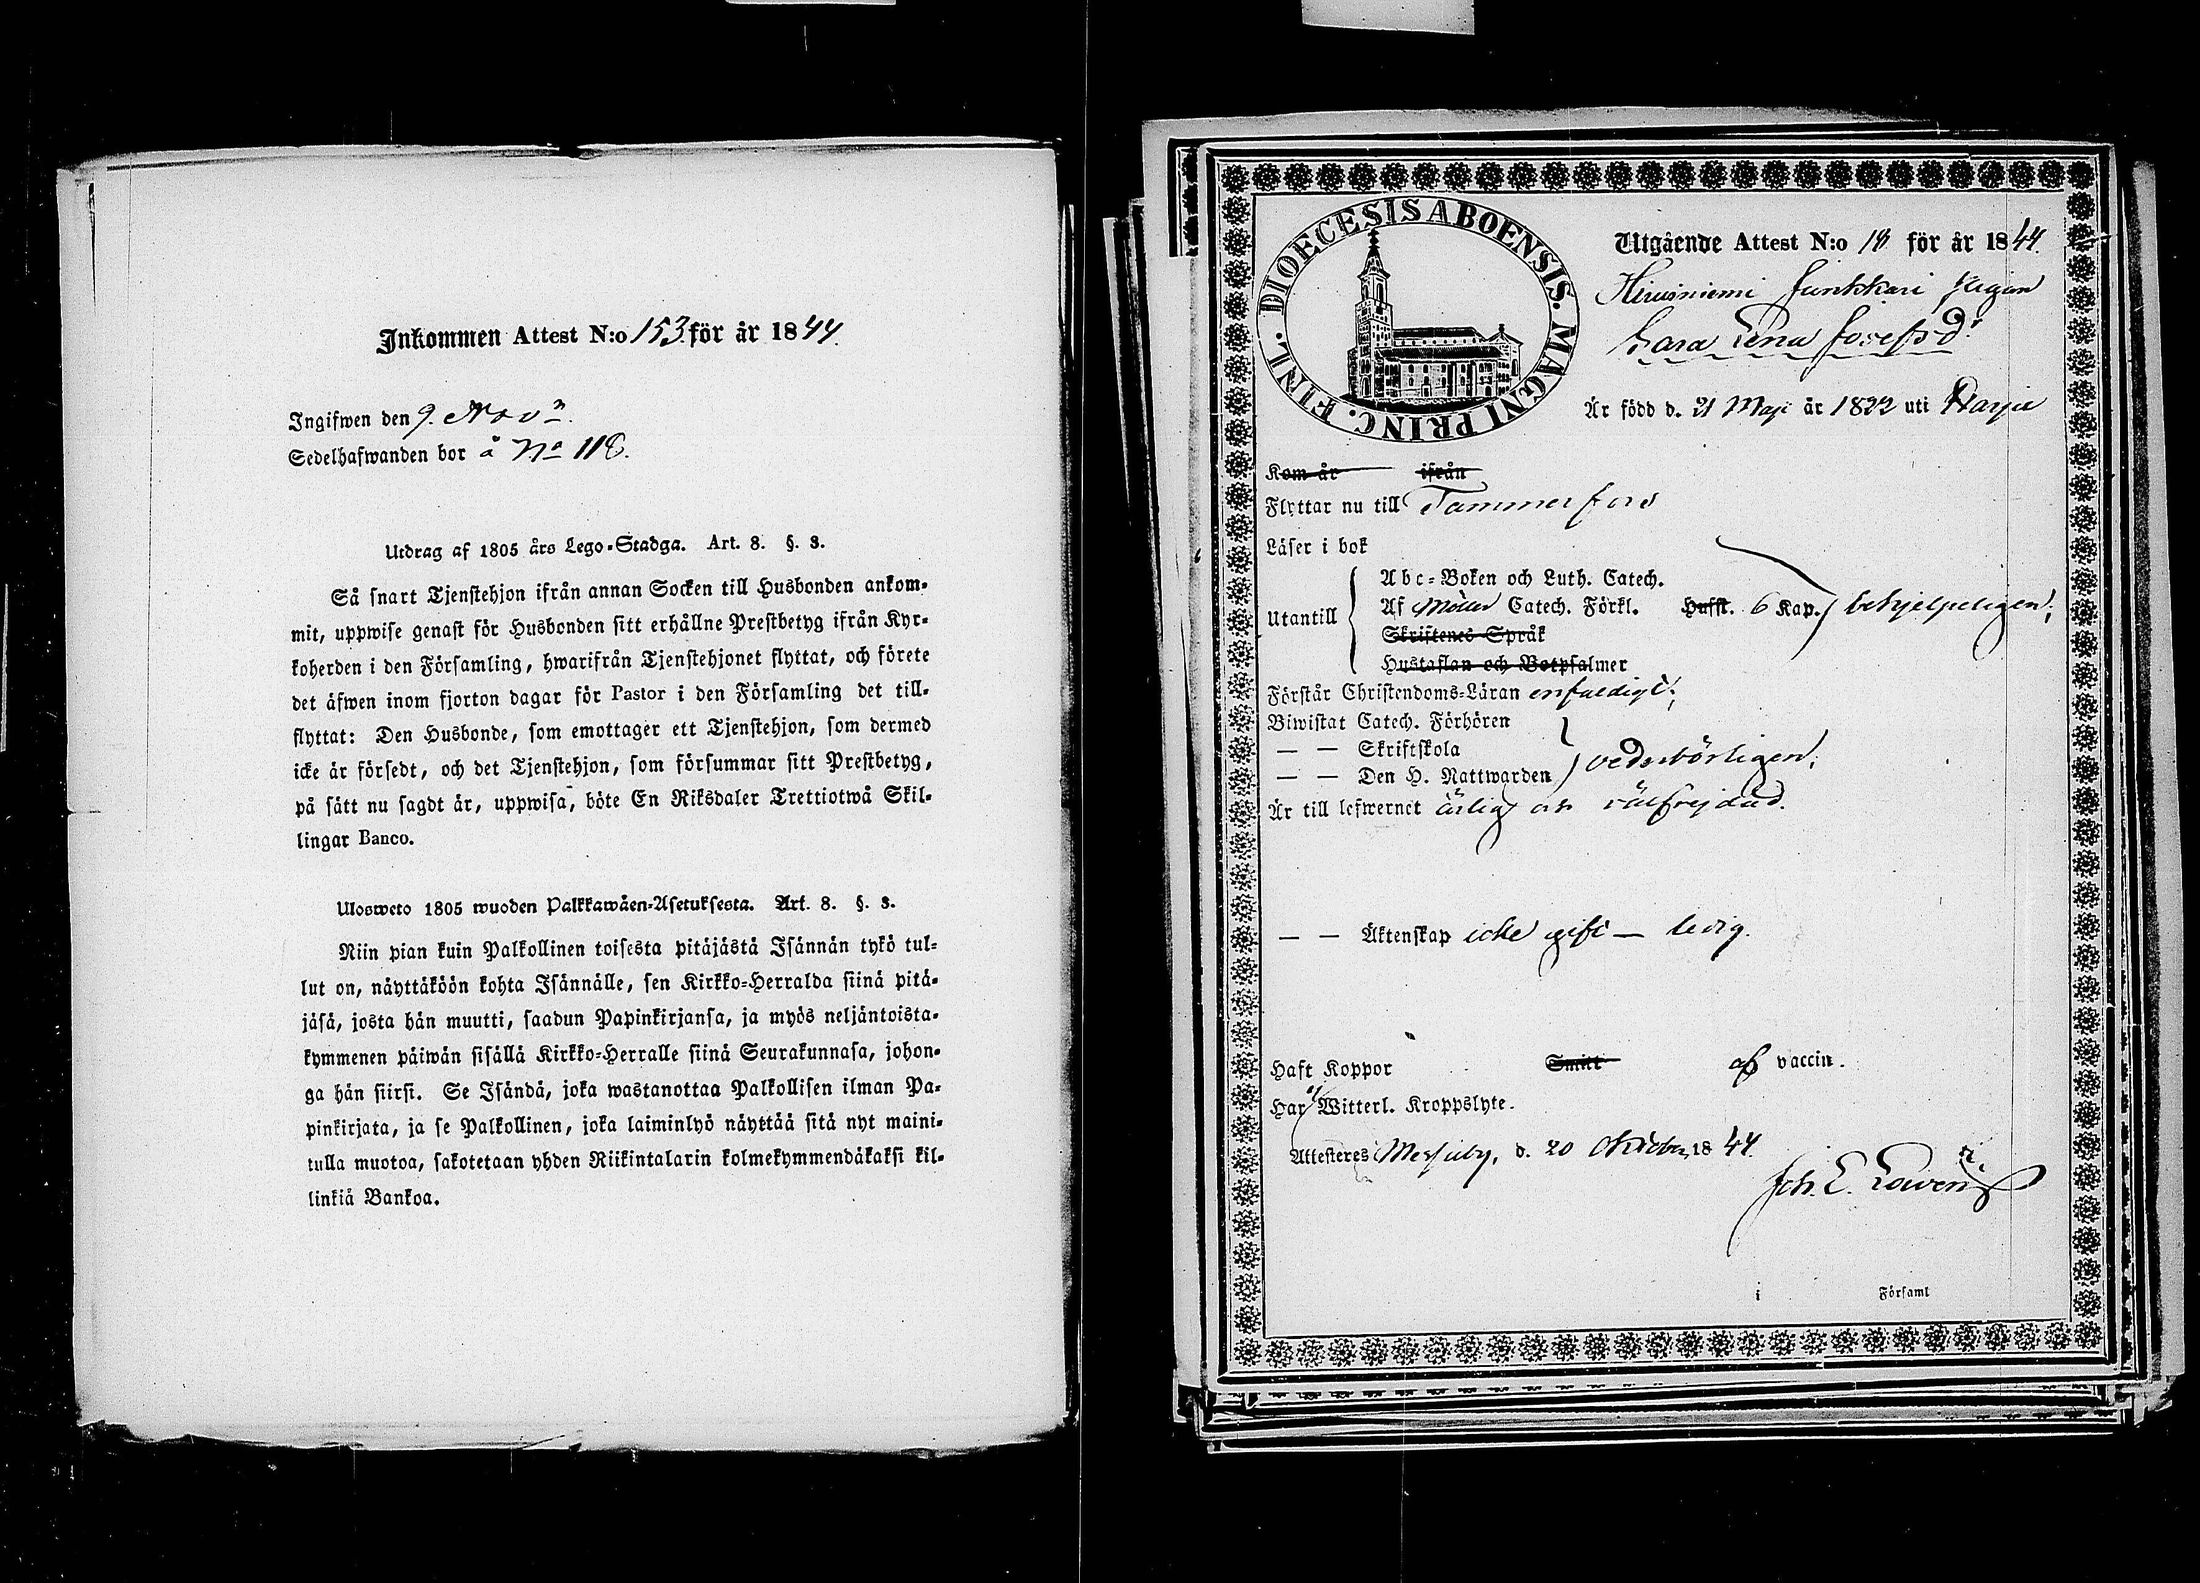 Inkommen Attest N:o 153 för år 1844.
Ingifwen den 9. Nov:
Sedelhafwanden bor å No 118.
Utdrag af 1805 års Lego-Stadga. Art. 8. §. 3.
Så snart Tjenstehjon ifrån annan Socken till Husbonden ankom-
mit, uppwise genast för Husbonden sitt erhållne Prestbetyg ifrån Kyr-
koherden i den Församling, hwarifrån Tjenstehjonet flyttat, och förete
det äfwen inom fjorton dagar för Pastor i den Församling det till-
flyttat: Den Husbonde, som emottager ett Tjenstehjon, som dermed
icke är försedt, och det Tjenstehjon, som försummar sitt Prestbetyg,
på sätt nu sagdt är, uppwisa, böte En Riksdaler Trettiotwå Skil-
lingar Banco.
Ulosweto 1805 wuoden Palkkawäen-Asetuksesta. Art. 8. §. 3.
Niin pian kuin Palkollinen toisesta pitäjästä Isännän tykö tul-
lut on, näyttäköön kohta Isännälle, sen Kirkko-Herralda siinä pitä-
jäsä, josta hän muutti, saadun Papinkirjansa, ja myös neljäntoista-
kymmenen päiwän sisällä Kirkko-Herralle siinä Seurakunnasa, johon-
ga hän siirsi. Se Isändä, joka wastanottaa Palkollisen ilman Pa-
pinkirjata, ja se Palkollinen, joka laiminlyö näyttää sitä nyt maini-
tulla muotoa, sakotetaan yhden Riikintalarin kolmekymmendäkaksi kil-
linkiä Bankoa.
DIOECESIS ABOENSIS. MAGNI PRINC. FINL.
Utgående Attest N:o 18 för år 1844.
Hirviniemi Junkkari Pigan
Sara Lena Josefsd:
Är född d. 21 Maji år 1822 uti Harju
Kom år ifrån
Flyttar nu till Tammerfors
Läser i bok
Abc-Boken och Luth. Catech.
Utantill Af Möller Catech. Förkl. Husst. 6 Kap. behjelpeligen;
Skriftenes Språk
Hustaflan och Botpsalmer
Förstår Christendoms-Läran enfaldigt;
Biwistat Catech. Förhören
— — Skriftskola
— — Den H. Nattwarden vederbörligen;
Är till lefwernet ärlig och välfrejdad.
— — Äktenskap icke gift — ledig.
Haft Koppor Smitt af vaccin.
Har ej Witterl. Kroppslyte.
Attesteres Messuby, d. 20 October 1844
Joh. E.
i Församl